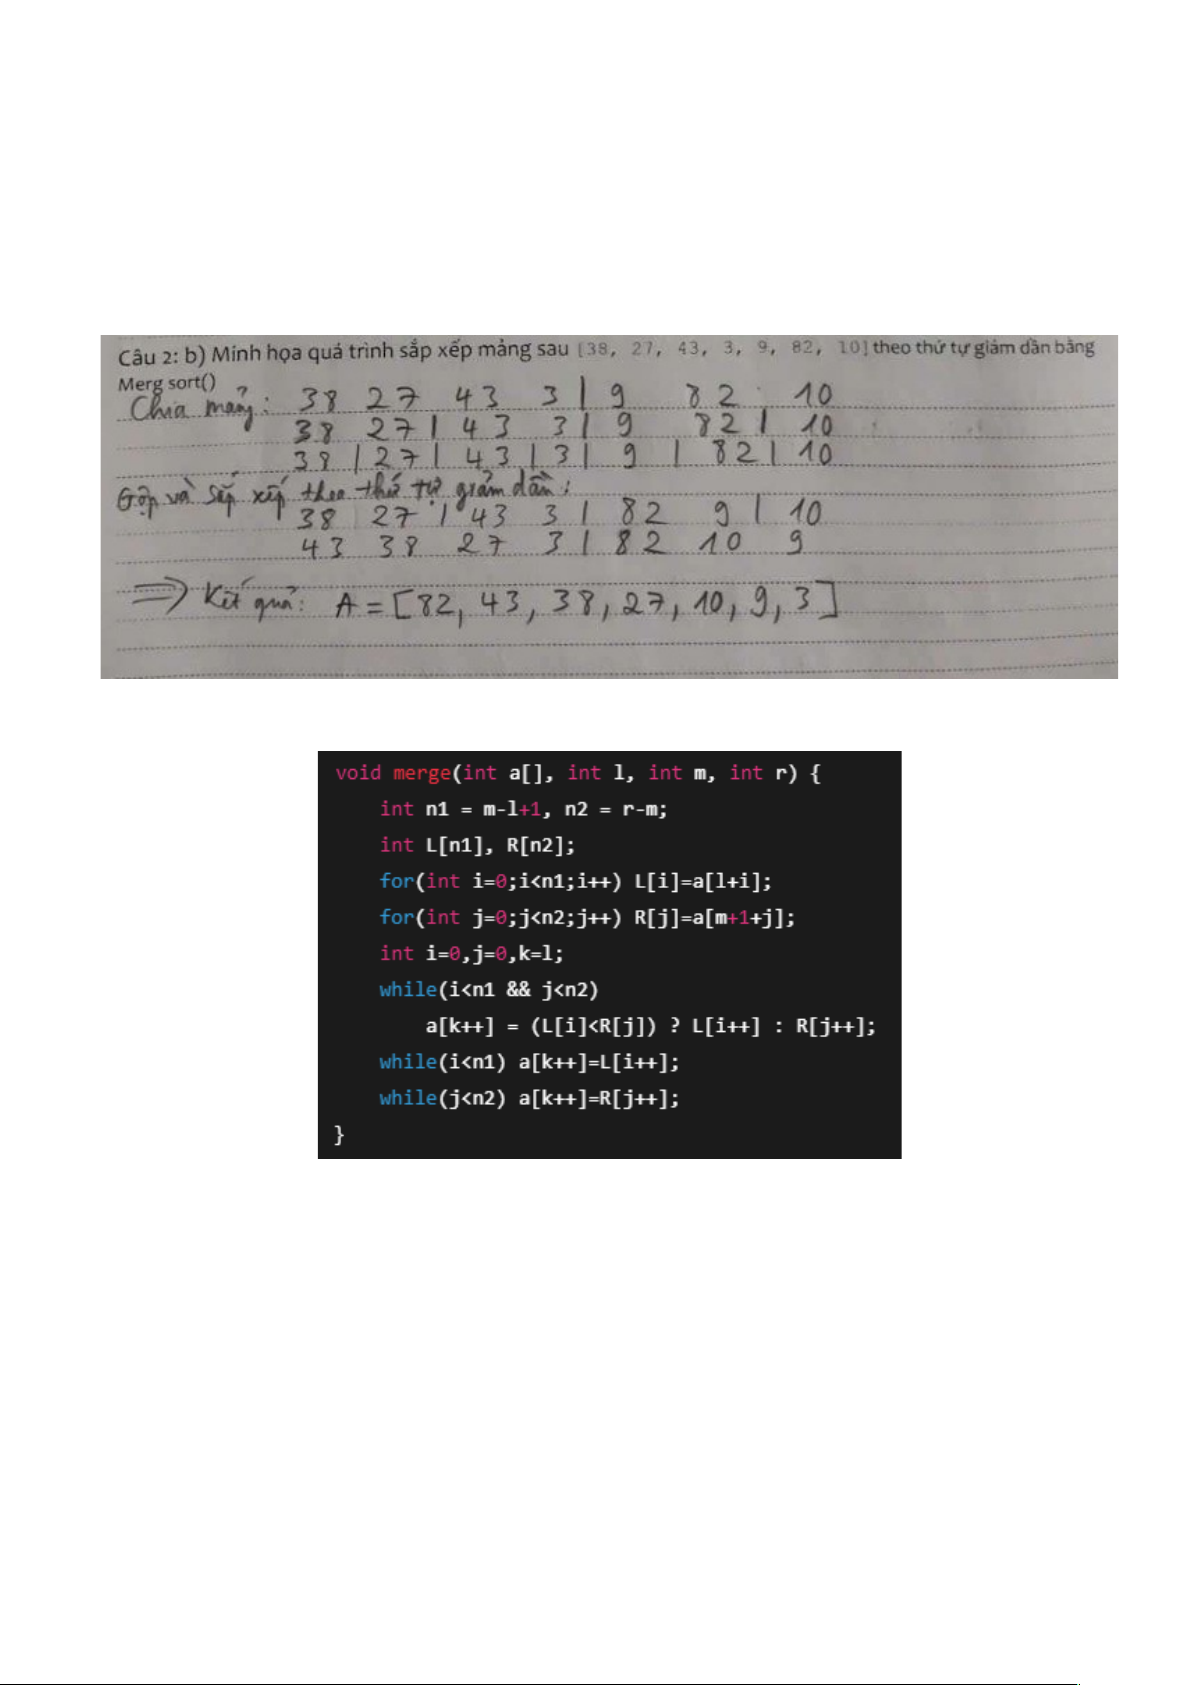 Câu 2: b) Minh họa quá trình sắp xếp mảng sau [38, 27, 43, 3, 9, 82, 10] theo thứ tự giảm dần bằng
Merg sort()
Chia mảng: 38 27 43 3 | 9 82 10
38 27 | 43 3 | 9 82 | 10
38 | 27 | 43 | 3 | 9 | 82 | 10
Gộp và sắp xếp theo thứ tự giảm dần:
38 27 | 43 3 | 82 9 | 10
43 38 27 3 | 82 10 9
=> Kết quả: A = [82, 43, 38, 27, 10, 9, 3]
void merge(int a[], int l, int m, int r) {
    int n1 = m-l+1, n2 = r-m;
    int L[n1], R[n2];
    for(int i=0;i<n1;i++) L[i]=a[l+i];
    for(int j=0;j<n2;j++) R[j]=a[m+1+j];
    int i=0,j=0,k=l;
    while(i<n1 && j<n2)
        a[k++] = (L[i]<R[j]) ? L[i++] : R[j++];
    while(i<n1) a[k++]=L[i++];
    while(j<n2) a[k++]=R[j++];
}